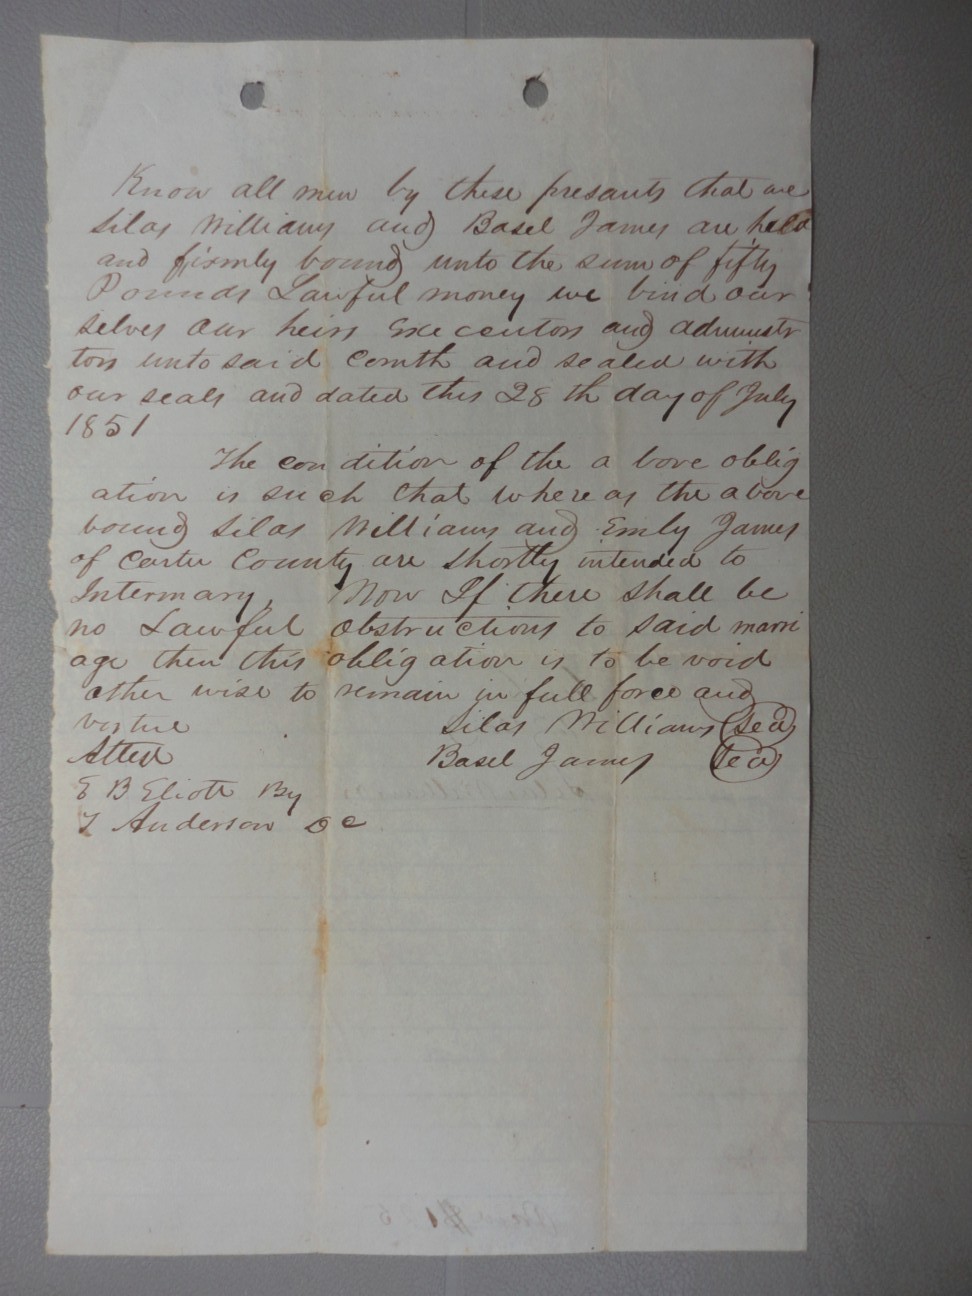 Know all men by these presants that we
Silas Williams and Basel James are held
and firmly bound unto the sum of fifty
Pounds Lawful money we bind our
selves our heirs Executors and administr
tors unto said Comth and sealed with
our seals and dated this 28th day of July
1851
The condition of the above oblig
ation is such that where as the above
bound Silas Williams and Emily James
of Carter County are shortly intended to
Intermary, Now If there shall be
no Lawful obstructions to said marri
age then this obligation is to be void
other wise to remain in full force and
virtue Silas Williams (Seal)
Attest Basel James (Seal)
E B Eliott By
T Anderson D C